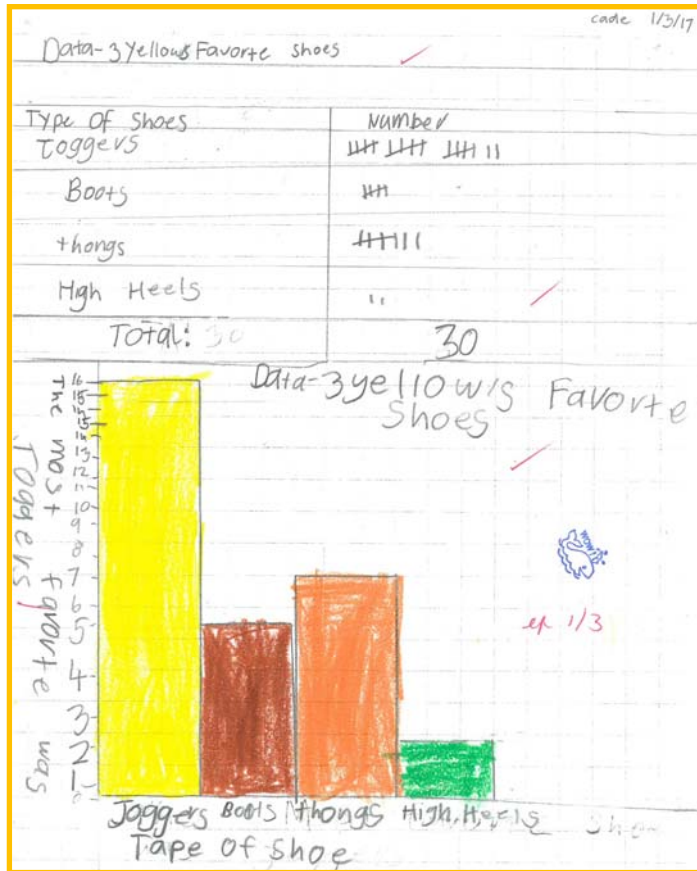 cade 1/3/17
Data-3 Yellows Favorte shoes
Type Of Shoes Number
Toggers
Boots
thongs
High Heels
Total: 30 30
Data-3yellow's Favorte
Shoes
The most favorte was
Toggers
16
15
13
12
11
10
9
8
7
6
5
4
3
2
1
0
WOW!
1/3
Joggers Boots thongs High, Heels
Tape of Shoe